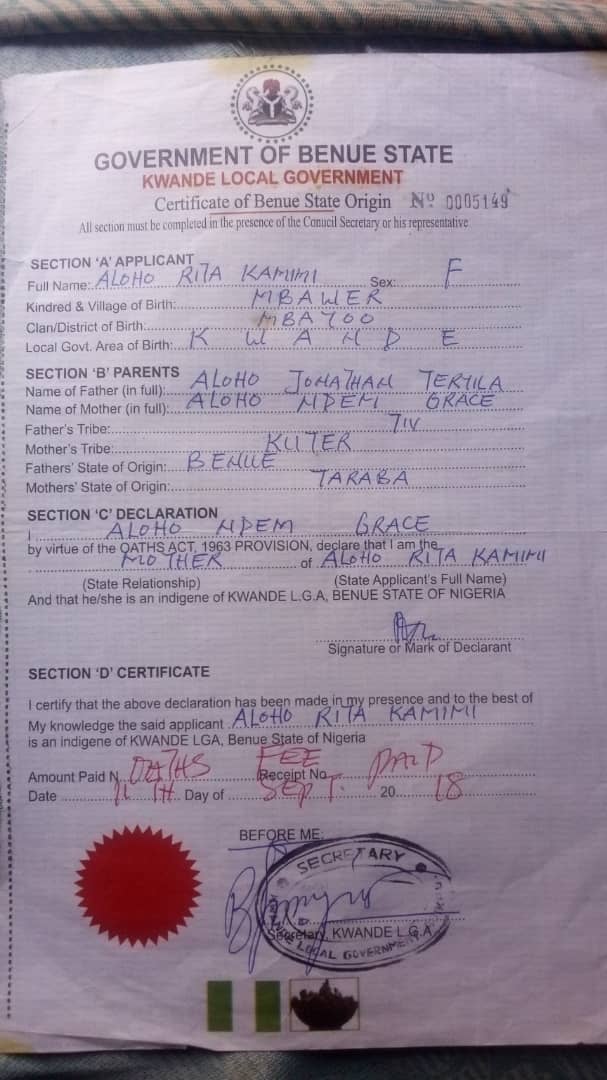 GOVERNMENT OF BENUE STATE
KWANDE LOCAL GOVERNMENT
Certificate of Benue State Origin Nº 0005149
All section must be completed in the presence of the Conucil Secretary or his representative
SECTION 'A' APPLICANT
Full Name: ALOHO RITA KAMIMI Sex: F
Kindred & Village of Birth: MBAWER
Clan/District of Birth: MBAYOO
Local Govt. Area of Birth: KWANDE
SECTION 'B' PARENTS
Name of Father (in full): ALOHO JONATHAN TERTILA
Name of Mother (in full): ALOHO NDEM GRACE
Father's Tribe: TIV
Mother's Tribe: KUTER
Fathers' State of Origin: BENUE
Mothers' State of Origin: TARABA
SECTION 'C' DECLARATION
I ALOHO NDEM GRACE
by virtue of the OATHS ACT, 1963 PROVISION, declare that I am the
MOTHER of ALOHO RITA KAMIMI
(State Relationship) (State Applicant's Full Name)
And that he/she is an indigene of KWANDE L.G.A, BENUE STATE OF NIGERIA
Signature or Mark of Declarant
SECTION 'D' CERTIFICATE
I certify that the above declaration has been made in my presence and to the best of
My knowledge the said applicant ALOHO RITA KAMIMI
is an indigene of KWANDE LGA, Benue State of Nigeria
Amount Paid N OATHS FEE Receipt No. PAID
Date 11TH Day of SEPT. 20 18
BEFORE ME:
SECRETARY
Secretary, KWANDE L.G.A
LOCAL GOVERNMENT